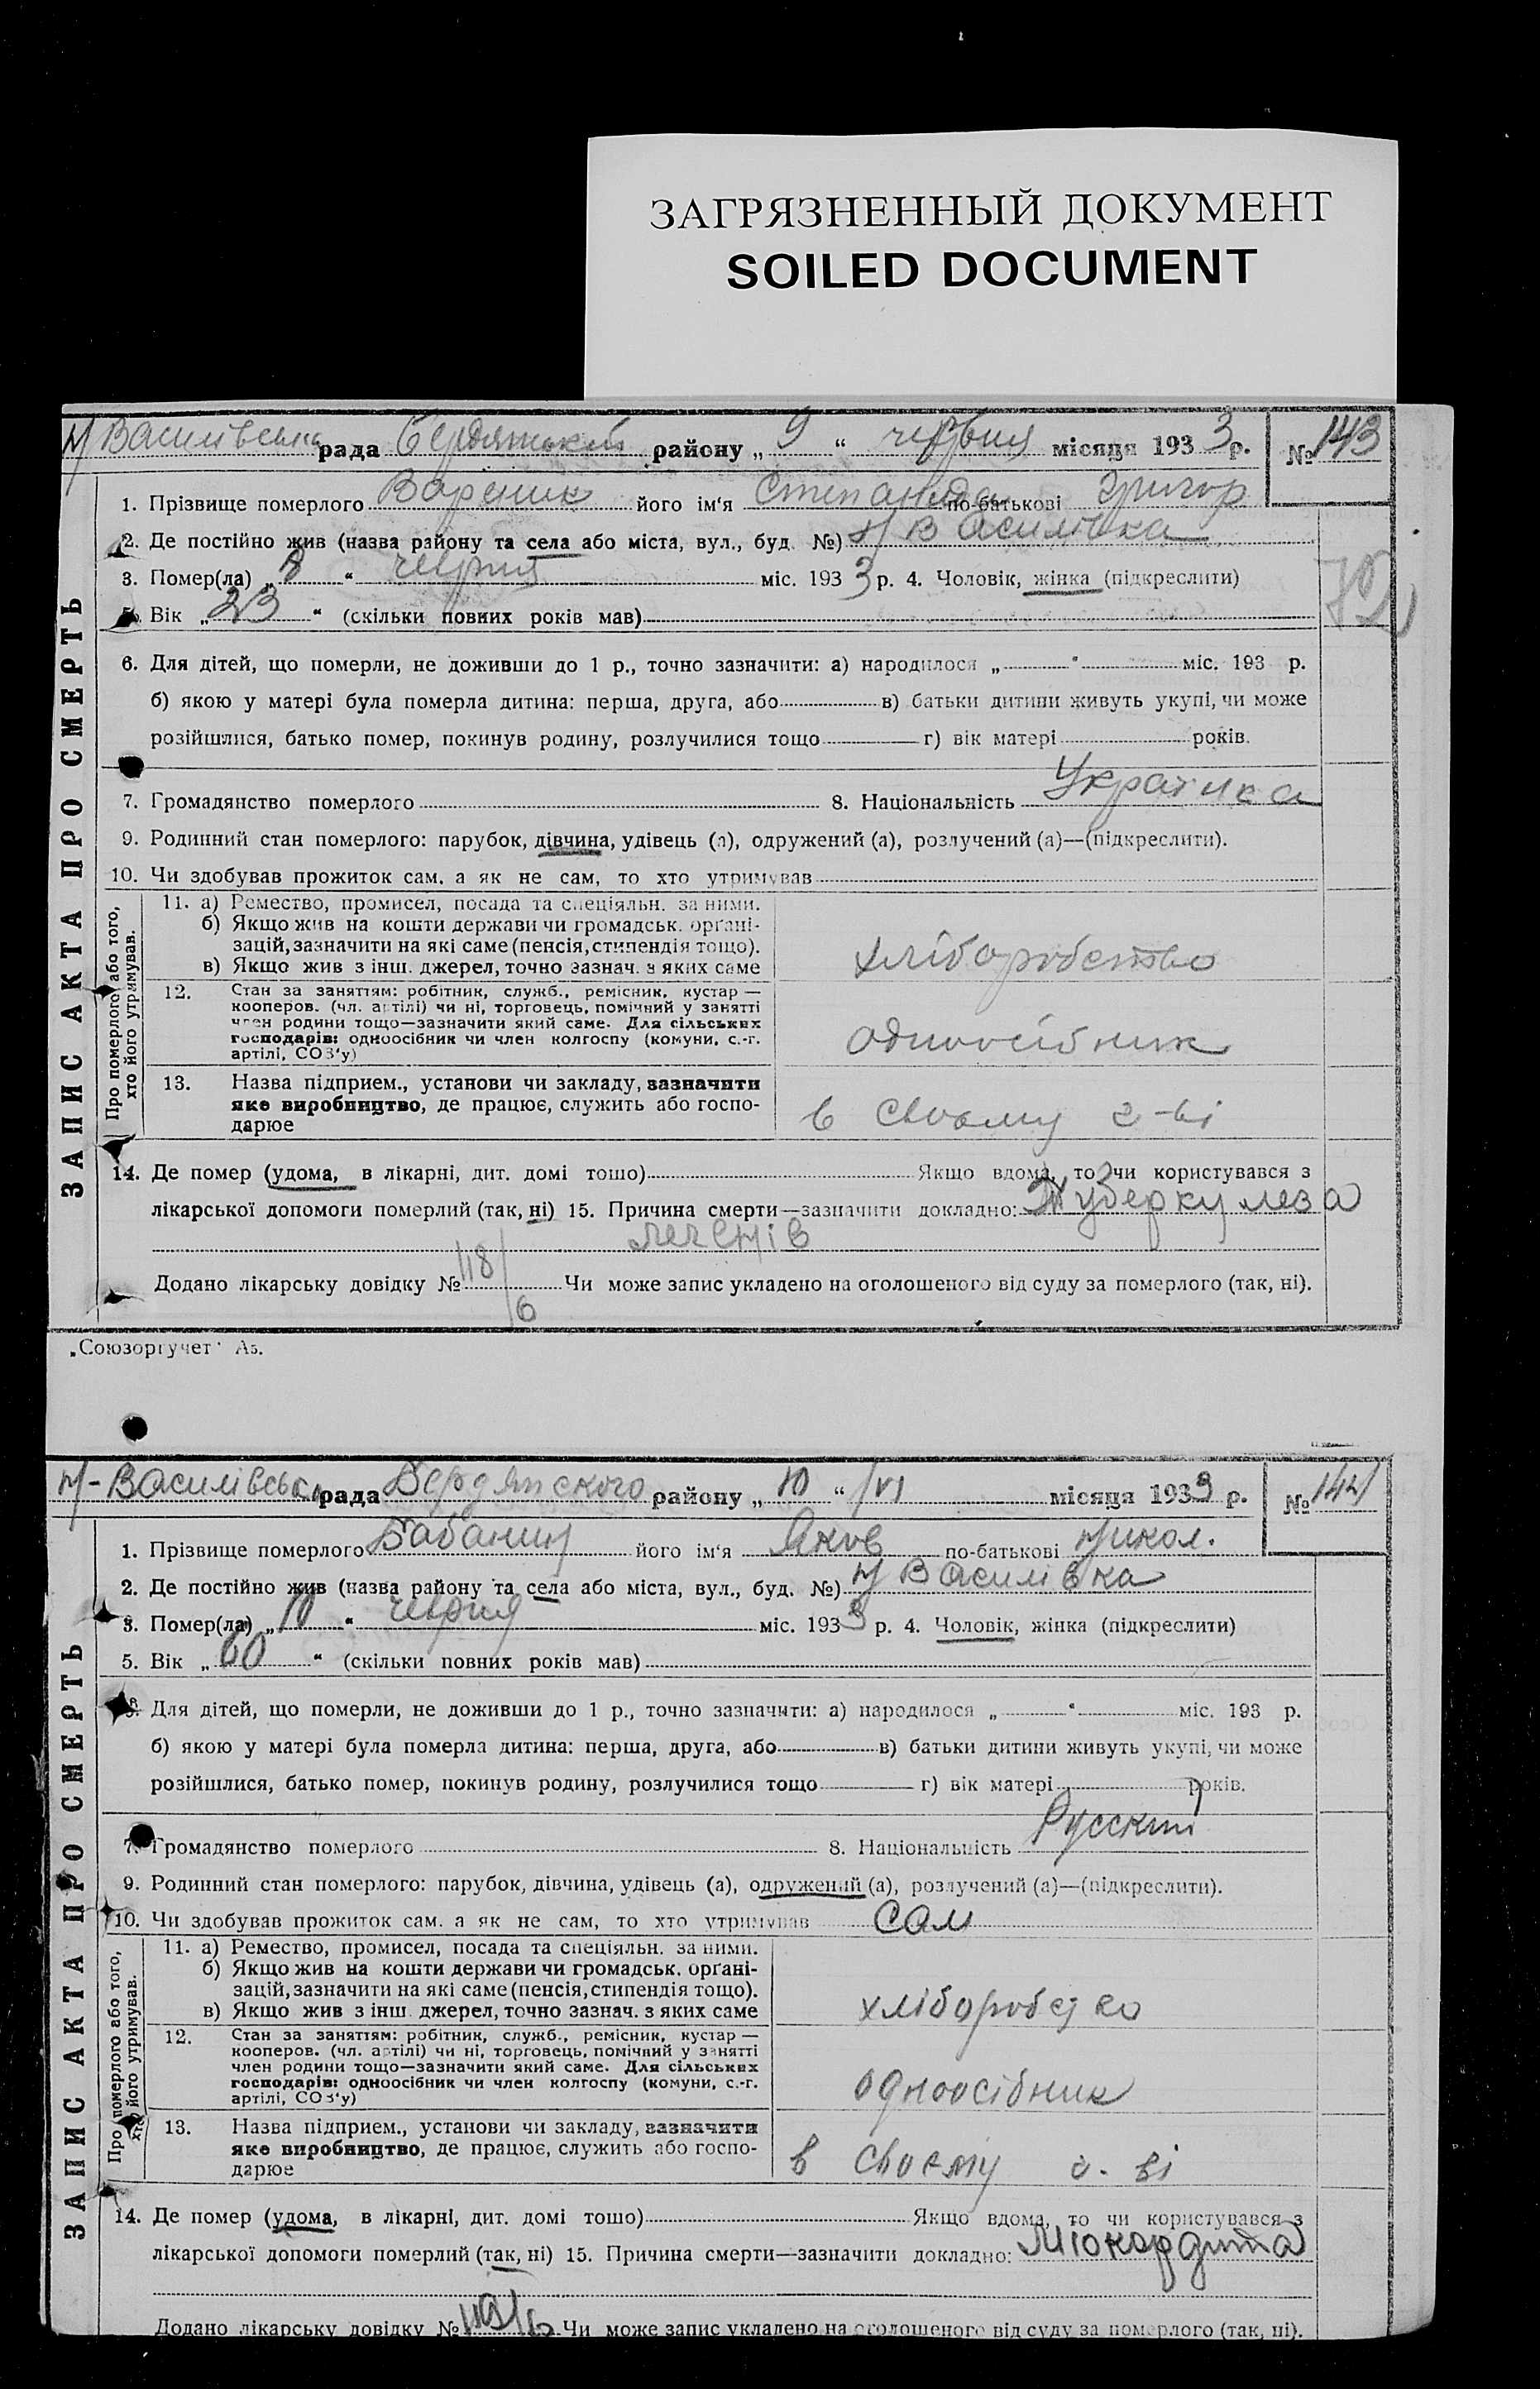 ЗАГРЯЗНЕННЫЙ ДОКУМЕНТ
SOILED DOCUMENT
Н/Василівська рада Бердянськ району „ 9 “ червня місяця 1933 р. № 143
1. Прізвище померлого Вареник його ім'я Степанида по-батькові Григор
2. Де постійно жив (назва району та села або міста, вул., буд. №) Н Василівка
3. Помер(ла) „ 8 “ червня міс. 1933 р. 4. Чоловік, жінка (підкреслити)
5. Вік „ 23 “ (скільки повних років мав)
6. Для дітей, що померли, не доживши до 1 р., точно зазначити: а) народилося „ “ міс. 193 р.
б) якою у матері була померла дитина: перша, друга, або в) батьки дитини живуть укупі, чи може
розійшлися, батько помер, покинув родину, розлучилися тощо г) вік матері років.
7. Громадянство померлого 8. Національність Українка
9. Родинний стан померлого: парубок, дівчина, удівець (а), одружений (а), розлучений (а)—(підкреслити).
10. Чи здобував прожиток сам, а як не сам, то хто утримував
Про померлого або того, хто його утримував.
11. а) Ремество, промисел, посада та спеціяльн. за ними.
б) Якщо жив на кошти держави чи громадськ. органі-
зацій, зазначити на які саме (пенсія, стипендія тощо).
в) Якщо жив з інш. джерел, точно зазнач. з яких саме
хліборобство
12. Стан за заняттям: робітник, служб., ремісник, кустар —
кооперов. (чл. артілі) чи ні, торговець, помічний у занятті
член родини тощо—зазначити який саме. Для сільських
господарів: одноосібник чи член колгоспу (комуни, с.-г.
артілі, СОЗ'у)
одноосібник
13. Назва підприєм., установи чи закладу, зазначити
яке виробництво, де працює, служить або госпо-
дарює
в своєму г-ві
14. Де помер (удома, в лікарні, дит. домі тощо) Якщо вдома, то чи користувався з
лікарської допомоги померлий (так, ні) 15. Причина смерти—зазначити докладно: Туберкулеза
легенів
Додано лікарську довідку № 118/6 Чи може запис укладено на оголошеного від суду за померлого (так, ні).
ЗАПИС АКТА ПРО СМЕРТЬ
„Союзоргучет“ Аз.
Н-Василівськ рада Бердянского району „ 10 “ /VI місяця 1933 р. № 144
1. Прізвище померлого Бабанин його ім'я Яков по-батькові Микол.
2. Де постійно жив (назва району та села або міста, вул., буд. №) Н Василівка
3. Помер(ла) „ 10 “ червня міс. 1933 р. 4. Чоловік, жінка (підкреслити)
5. Вік „ 60 “ (скільки повних років мав)
6. Для дітей, що померли, не доживши до 1 р., точно зазначити: а) народилося „ “ міс. 193 р.
б) якою у матері була померла дитина: перша, друга, або в) батьки дитини живуть укупі, чи може
розійшлися, батько помер, покинув родину, розлучилися тощо г) вік матері років.
7. Громадянство померлого 8. Національність Русский
9. Родинний стан померлого: парубок, дівчина, удівець (а), одружений (а), розлучений (а)—(підкреслити).
10. Чи здобував прожиток сам, а як не сам, то хто утримував сам
Про померлого або того, хто його утримував.
11. а) Ремество, промисел, посада та спеціяльн. за ними.
б) Якщо жив на кошти держави чи громадськ. органі-
зацій, зазначити на які саме (пенсія, стипендія тощо).
в) Якщо жив з інш. джерел, точно зазнач. з яких саме
хліборобство
12. Стан за заняттям: робітник, служб., ремісник, кустар —
кооперов. (чл. артілі) чи ні, торговець, помічний у занятті
член родини тощо—зазначити який саме. Для сільських
господарів: одноосібник чи член колгоспу (комуни, с.-г.
артілі, СОЗ'у)
одноосібник
13. Назва підприєм., установи чи закладу, зазначити
яке виробництво, де працює, служить або госпо-
дарює
в своєму г. ві
14. Де помер (удома, в лікарні, дит. домі тощо) Якщо вдома, то чи користувався з
лікарської допомоги померлий (так, ні) 15. Причина смерти—зазначити докладно: Міокардита
Додано лікарську довідку № 119/6 Чи може запис укладено на оголошеного від суду за померлого (так, ні).
ЗАПИС АКТА ПРО СМЕРТЬ